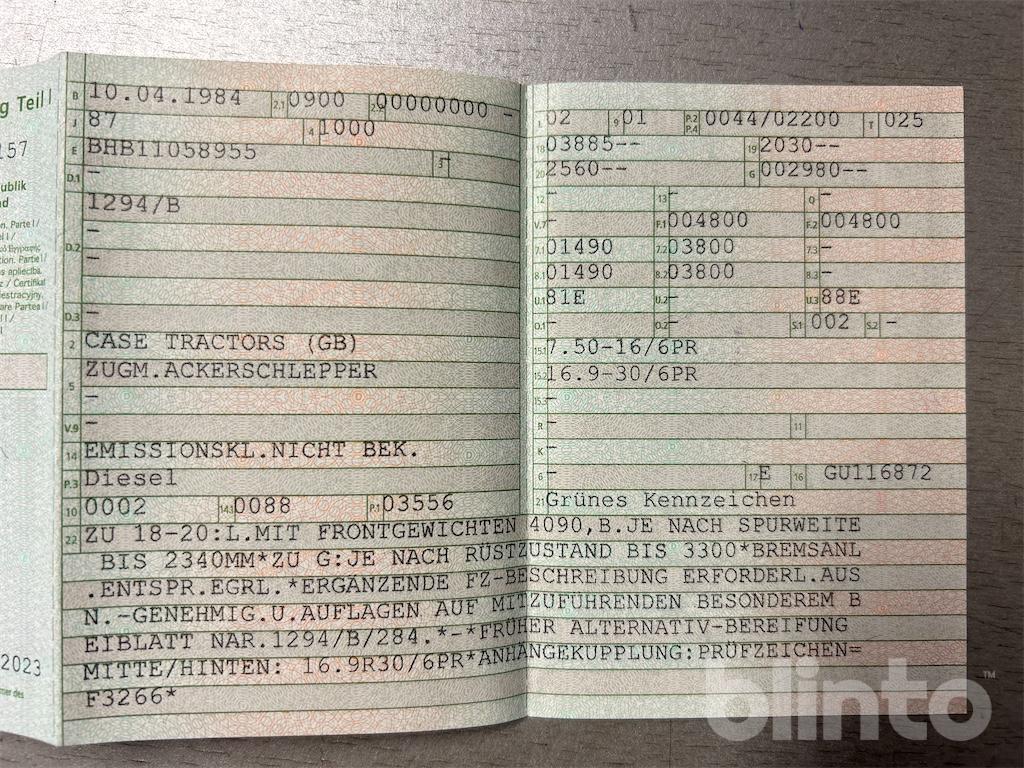 g Teil I
157
ublik
nd
n. Parte I /
el I /
ion. Partie I /
as apliecība.
z / Certifikat
are Partea I /
2023
B 10.04.1984 2.1 0900 2.2 00000000 -
J 87 4 1000
E BHB11058955 3 -
D.1 -
1294/B
D.2 -
-
D.3 -
2 CASE TRACTORS (GB)
5 ZUGM.ACKERSCHLEPPER
-
V.9 -
14 EMISSIONSKL.NICHT BEK.
P.3 Diesel
10 0002 14.1 0088 P.1 03556
L 02 9 01 P.2 P.4 0044/02200 T 025
18 03885-- 19 2030--
20 2560-- G 002980--
12 - 13 - Q -
V.7 - F.1 004800 F.2 004800
7.1 01490 7.2 03800 7.3 -
8.1 01490 8.2 03800 8.3 -
U.1 81E U.2 - U.3 88E
O.1 - O.2 - S.1 002 S.2 -
15.1 7.50-16/6PR
15.2 16.9-30/6PR
15.3 -
R - 11
K -
6 - 17 E 16 GU116872
21 Grünes Kennzeichen
22 ZU 18-20:L.MIT FRONTGEWICHTEN 4090,B.JE NACH SPURWEITE
BIS 2340MM*ZU G:JE NACH RÜSTZUSTAND BIS 3300*BREMSANL
.ENTSPR.EGRL.*ERGÄNZENDE FZ-BESCHREIBUNG ERFORDERL.AUS
N.-GENEHMIG.U.AUFLAGEN AUF MITZUFÜHRENDEN BESONDEREM B
EIBLATT NAR.1294/B/284.*-*FRÜHER ALTERNATIV-BEREIFUNG
MITTE/HINTEN: 16.9R30/6PR*ANHÄNGEKUPPLUNG:PRÜFZEICHEN=
F3266*
blinto™